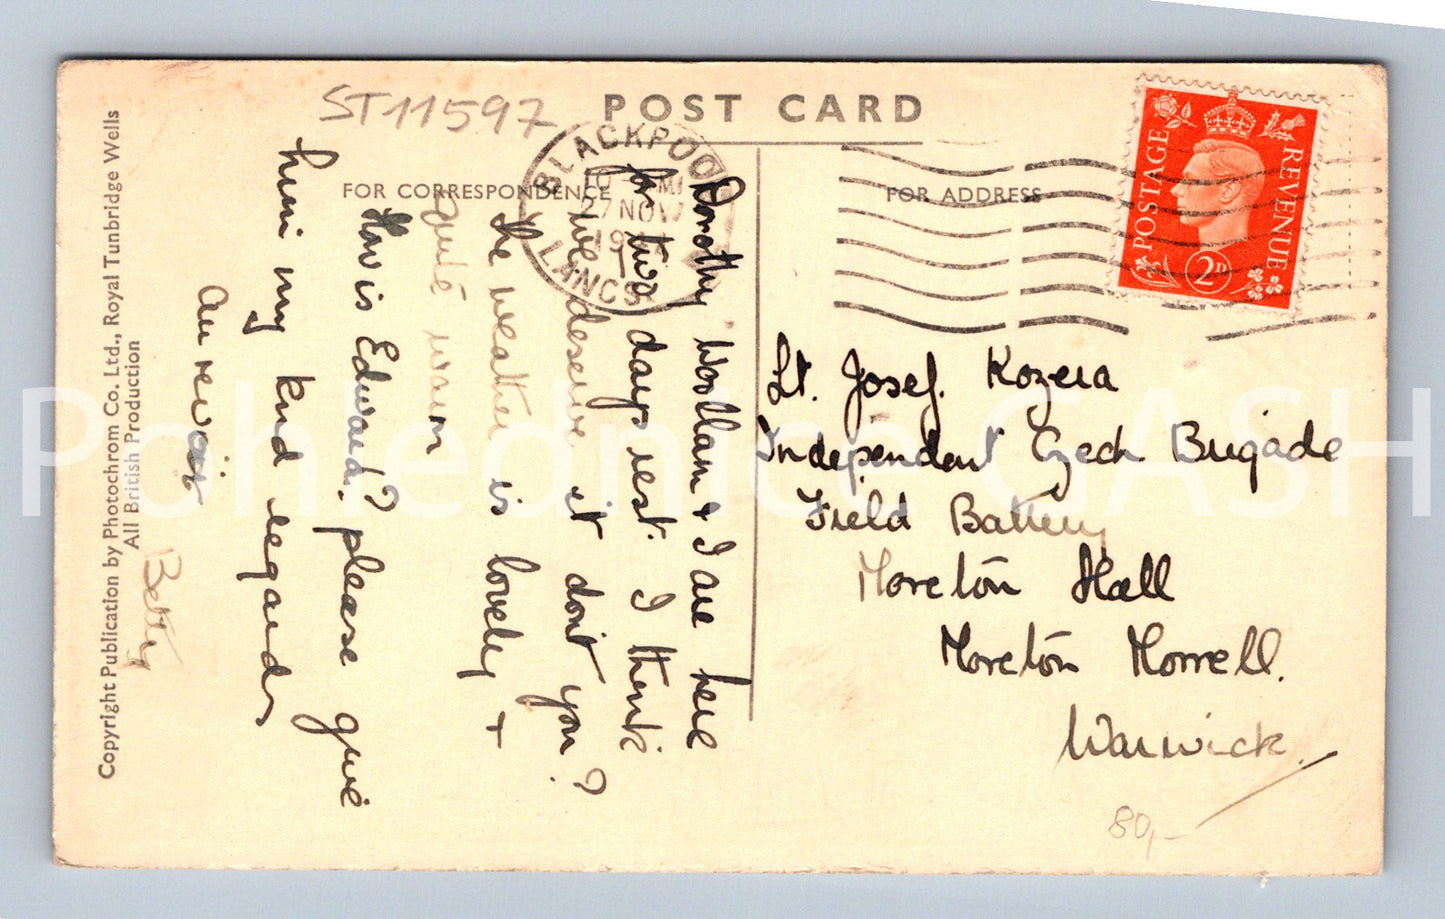 ST11597
POST CARD
FOR CORRESPONDENCE
FOR ADDRESS
BLACKPOOL
27 NOV
LANCS
POSTAGE
REVENUE
2D
Dorothy Woollam & I are here
for two days rest. I think
we deserve it don't you?
The weather is lovely &
quite warm
How is Edward? please give
him my kind regards
Au revoir
Betty
Lt. Josef. Kozera
Independent Czech Brigade
Field Battery
Moreton Hall
Moreton Morrell.
Warwick.
80,-
Copyright Publication by Photochrom Co. Ltd., Royal Tunbridge Wells
All British Production
Pohlednice GASH